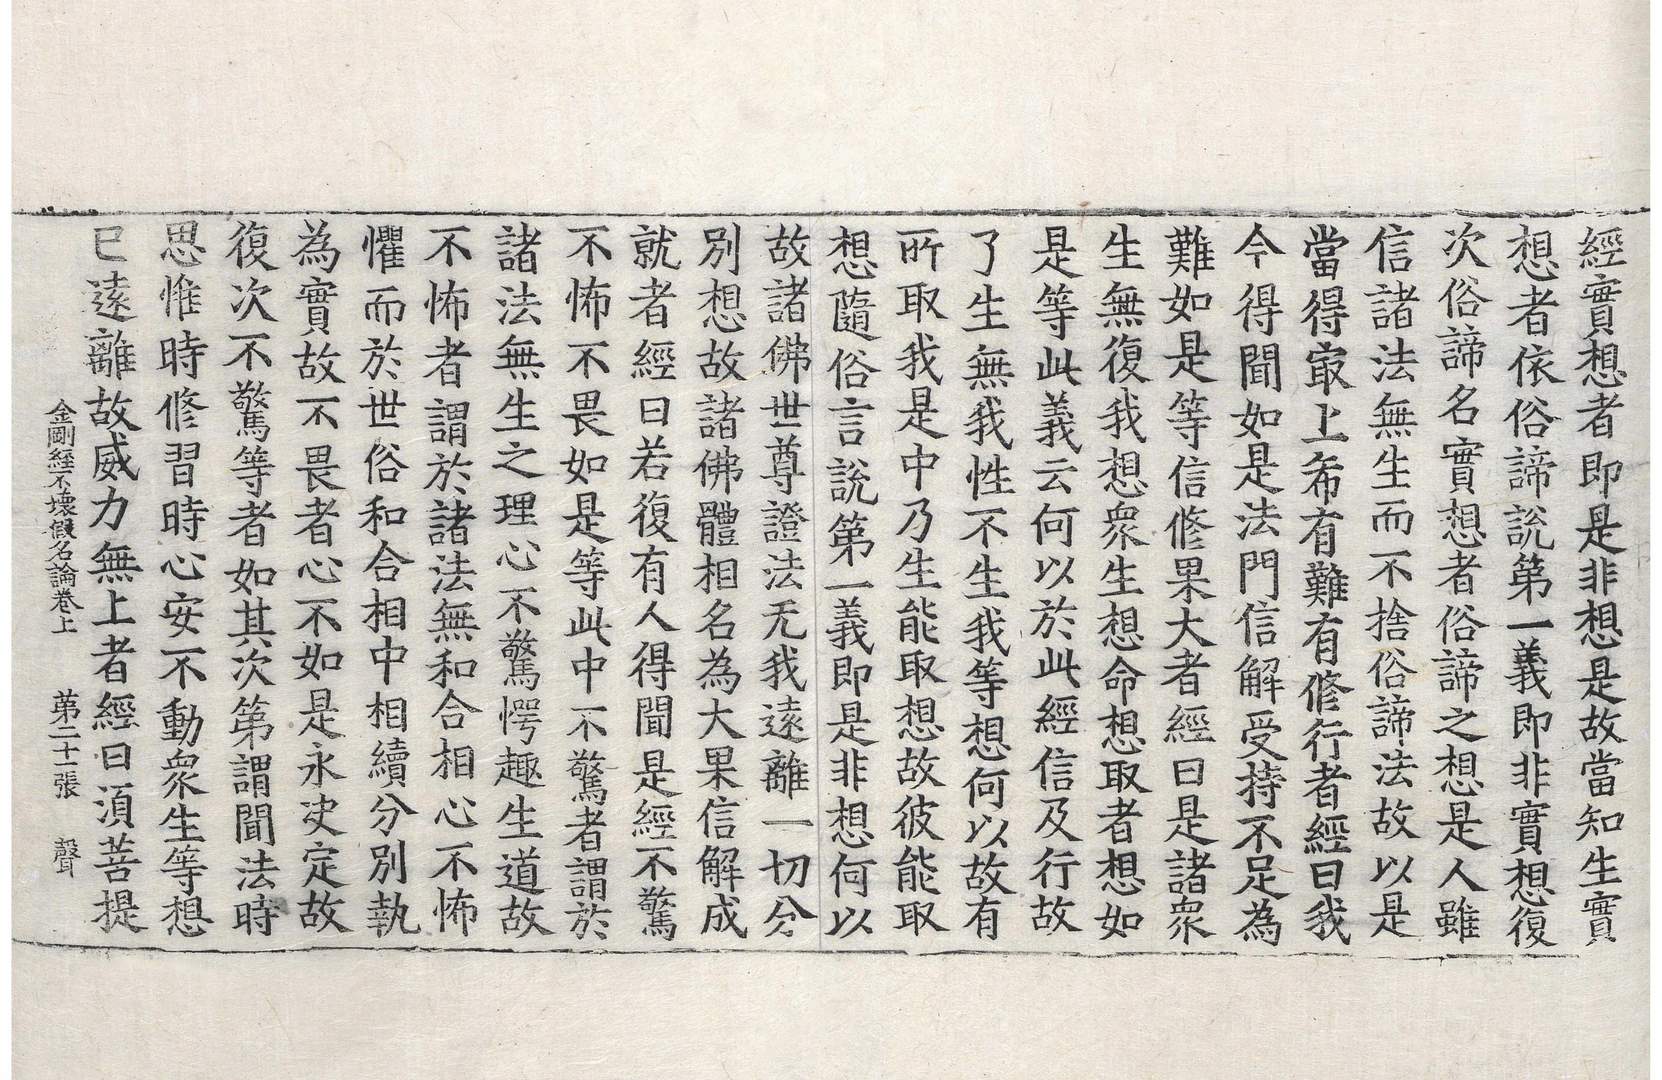 經實想者即是非想是故當知生實
想者依俗諦說第一義即非實想復
次俗諦名實想者俗諦之想是人雖
信諸法無生而不捨俗諦法故以是
當得㝡上希有難有修行者經曰我
今得聞如是法門信解受持不足為
難如是等信修果大者經曰是諸衆
生無復我想衆生想命想取者想如
是等此義云何以於此經信及行故
了生無我性不生我等想何以故有
所取我是中乃生能取想故彼能取
想隨俗言說第一義即是非想何以
故諸佛世尊證法无我遠離一切分
別想故諸佛體相名為大果信解成
就者經曰若復有人得聞是經不驚
不怖不畏如是等此中不驚者謂於
諸法無生之理心不驚愕趣生道故
不怖者謂於諸法無和合相心不怖
懼而於世俗和合相中相續分別執
為實故不畏者心不如是永決定故
復次不驚等者如其次第謂聞法時
思惟時修習時心安不動衆生等想
已遠離故威力無上者經曰須菩提
金剛經不壞假名論卷上 第二十一張 聲